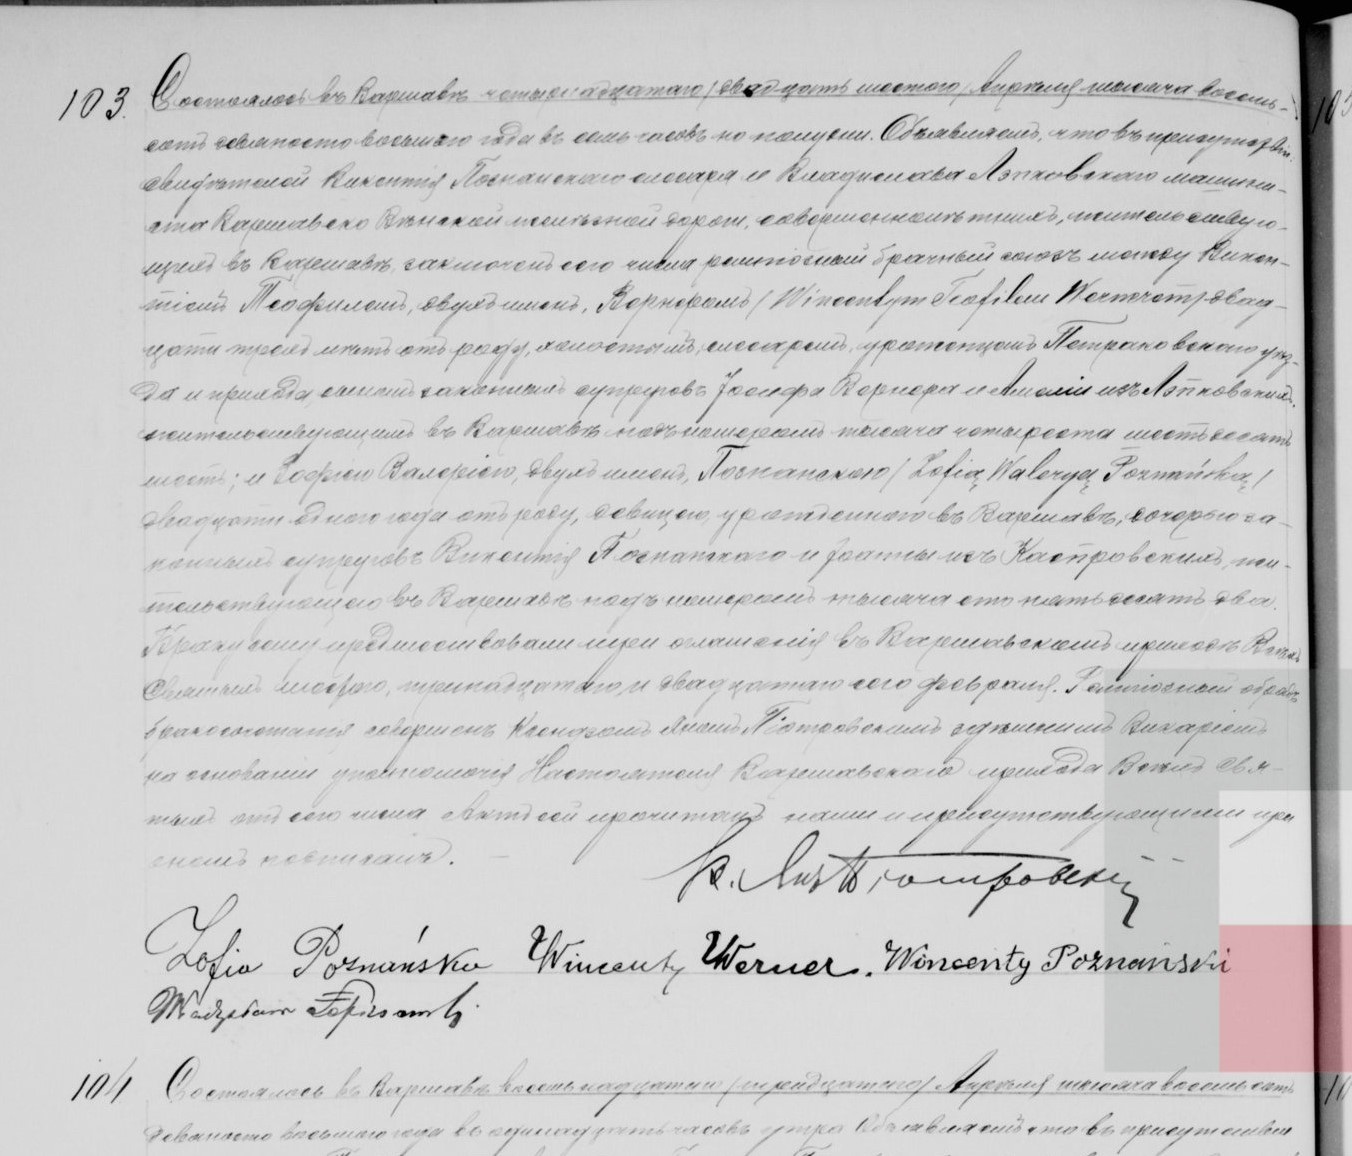 103. Состоялось въ Варшавѣ четырнадцатаго / двадцать шестого / Апрѣля тысяча восемь-
сотъ девяносто восьмого года въ семь часовъ по полудни. Объявляемъ, что въ присутствіи
свидѣтелей Викентія Познанскаго слесаря и Владислава Лэпковскаго машини-
ста Варшавско Вѣнской желѣзной дороги, совершеннолѣтнихъ, жительствую-
щихъ въ Варшавѣ, заключенъ сего числа религіозный брачный союзъ между Викен-
тіемъ Теофиломъ, двухъ именъ, Вернеромъ / Wincentym Teofilem Wernerem / двад-
цати трехъ лѣтъ отъ роду, холостымъ, слесаремъ, уроженцемъ Петраковскаго уѣз-
да и прихода, сыномъ законныхъ супруговъ Іосифа Вернера и Амаліи изъ Лэпковскихъ.
жительствующимъ въ Варшавѣ подъ номеромъ тысяча четыреста шестьдесятъ
шесть; и Софіею Валеріею, двухъ именъ, Познанскою / Zofią Waleryą Poznańską /
двадцати одного года отъ роду, дѣвицею, урожденною въ Варшавѣ, дочерью за-
конныхъ супруговъ Викентія Познанскаго и Іоанны изъ Каспровскихъ, жи-
тельствующею въ Варшавѣ подъ номеромъ тысяча сто пятьдесятъ два.
Браку сему предшествовали три оглашенія въ Варшавскомъ приходѣ Всѣхъ
Святыхъ шестого, тринадцатаго и двадцатаго сего февраля. Религіозный обрядъ
бракосочетанія совершенъ Ксендзомъ Яномъ Піотровскимъ здѣшнимъ Викаріемъ
на основаніи уполномочія Настоятеля Варшавскаго прихода Всѣхъ Свя-
тыхъ отъ сего числа Актъ сей прочитанъ нами и присутствующими при
ономъ подписанъ.
Кс. Янъ Піотровскій
Zofia Poznańska Wincenty Werner. Wincenty Poznański
Władysław
104 Состоялось въ Варшавѣ восемнадцатаго / тридцатаго / Апрѣля тысяча восемьсотъ
девяносто восьмого года въ одинадцать часовъ утра Объявляемъ что въ присутствіи